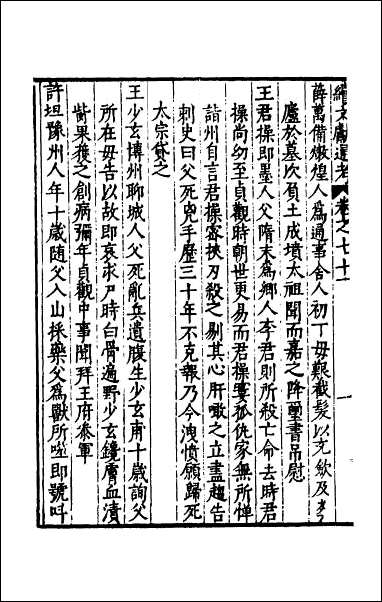 續文獻通考 卷之七十一 一
薛萬備燉煌人爲通事舍人初丁母艱截髮以充歛及
廬於墓次負土成墳太祖聞而嘉之降璽書吊慰
王君操即墨人父隋末爲鄉人李君則所殺亡命去時君
操尚幼至貞觀時朝世更易而君操寠孤仇家無所憚
詣州自言君操密挾刃殺之剔其心肝噉之立盡趨告
刺史曰父死兇手歷三十年不克報乃今洩憤願歸死
太宗貸之
王少玄博州聊城人父死亂兵遺腹生少玄甫十歲詢父
所在母告以故即哀求尸時白骨遍野少玄鑱膚血漬
骴果獲之創病彌年貞觀中事聞拜王府叅軍
許坦豫州人年十歲随父入山採藥父爲獸所噬即號呌